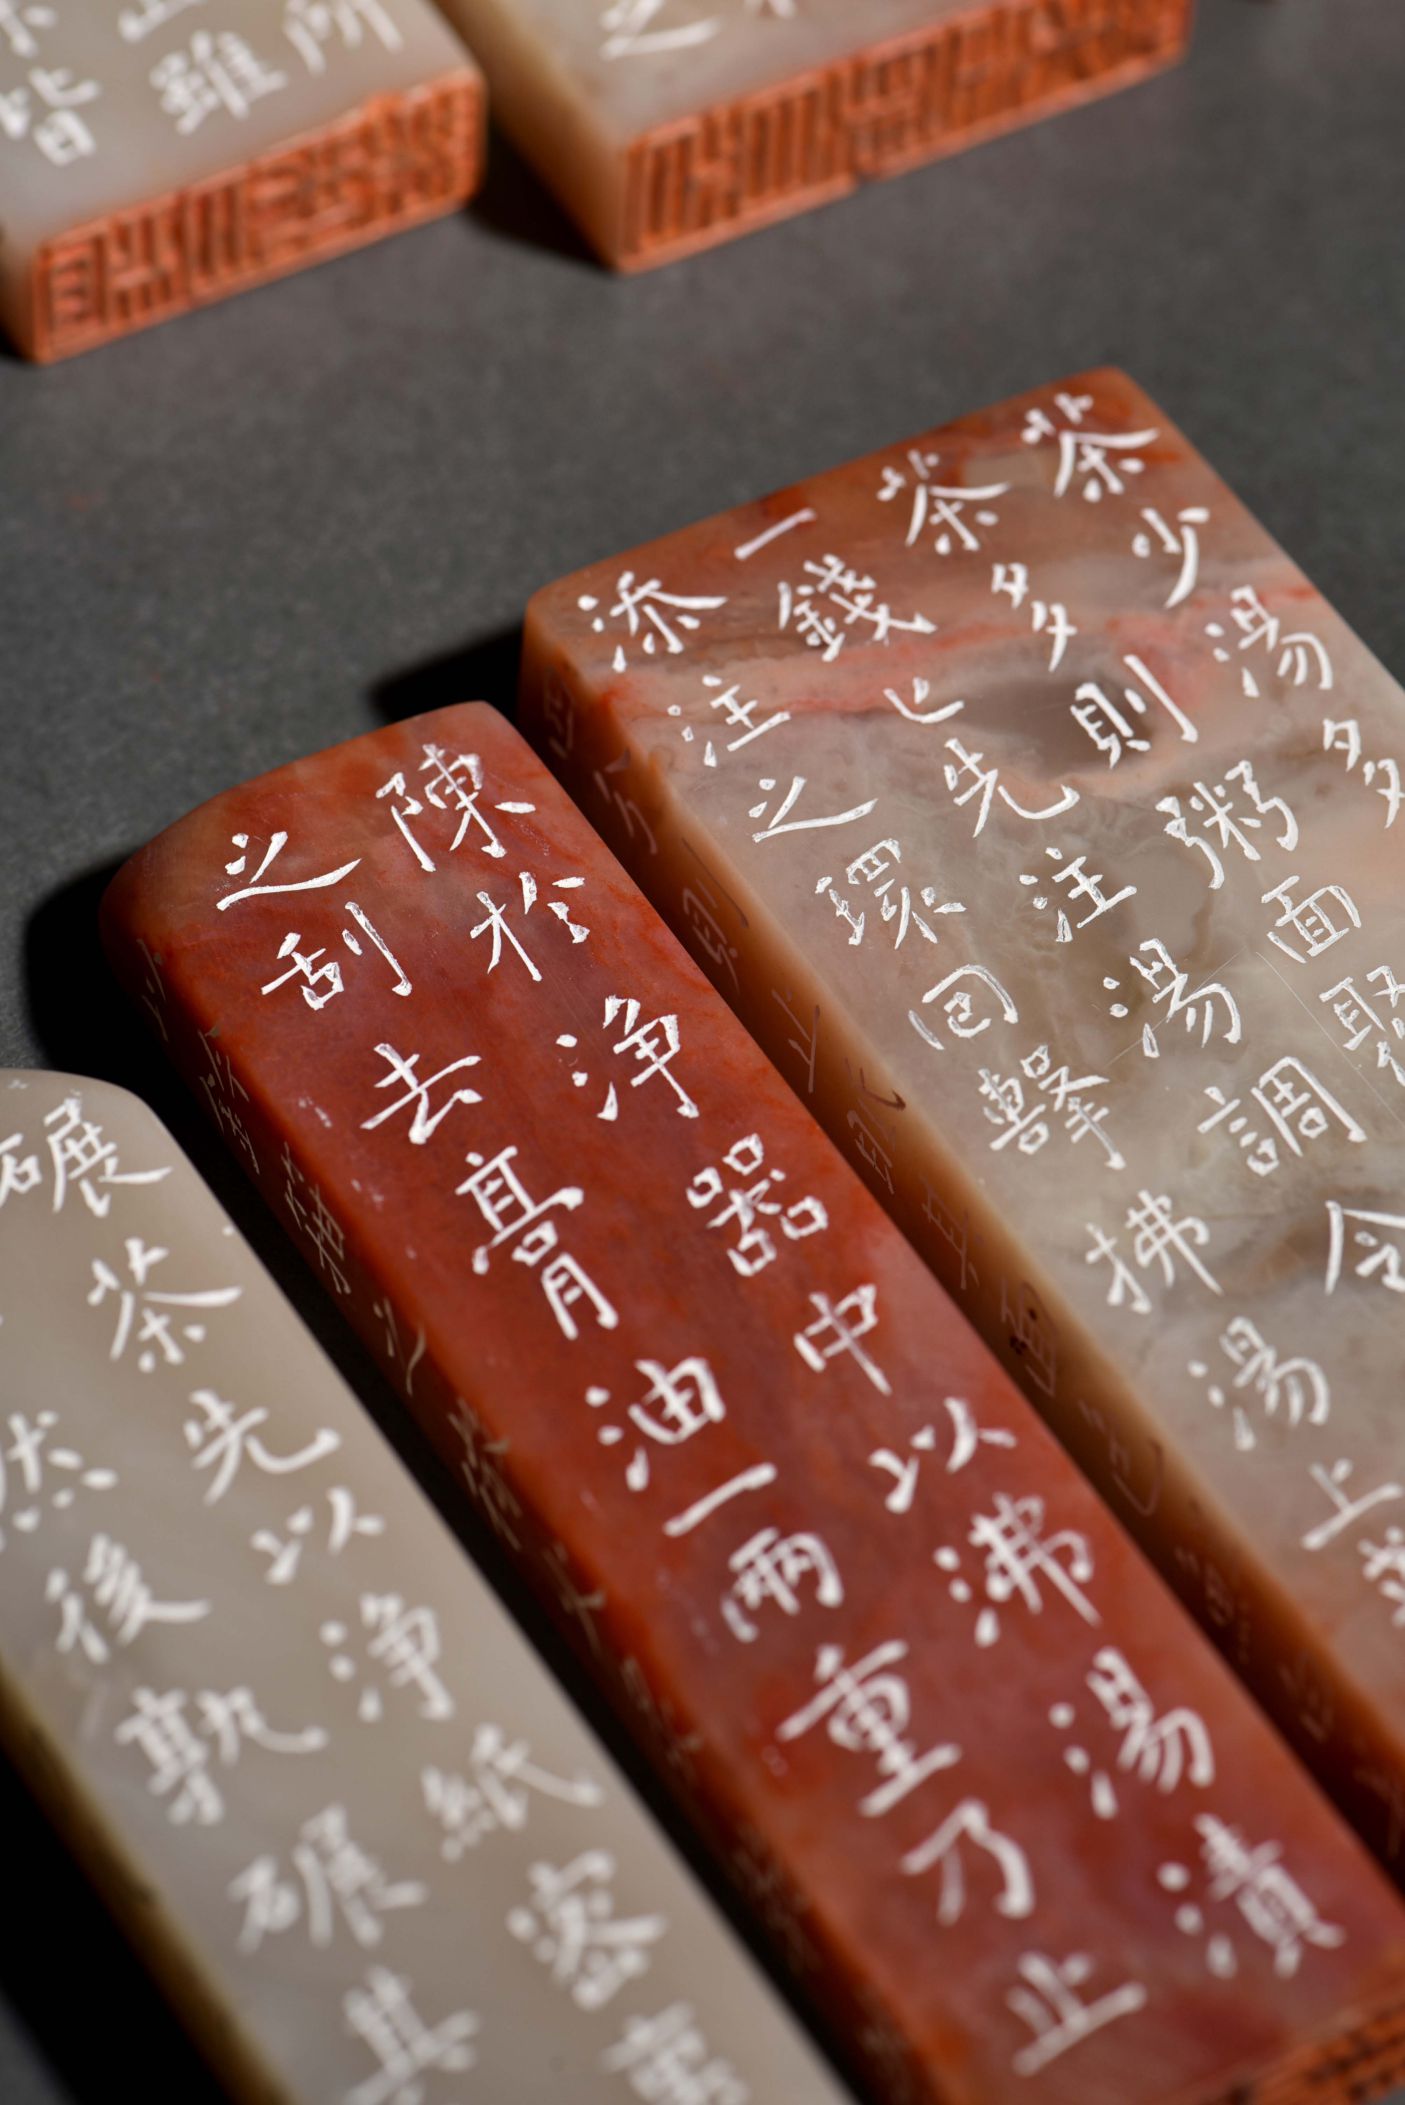 所
雖
皆
之
茶少湯多
茶多則粥面聚
一錢匕先注湯調令
添注之環回擊拂湯上
陳於浄器中以沸湯漬
之刮去膏油一兩重乃止
碾茶先以浄紙密
然後孰碾其